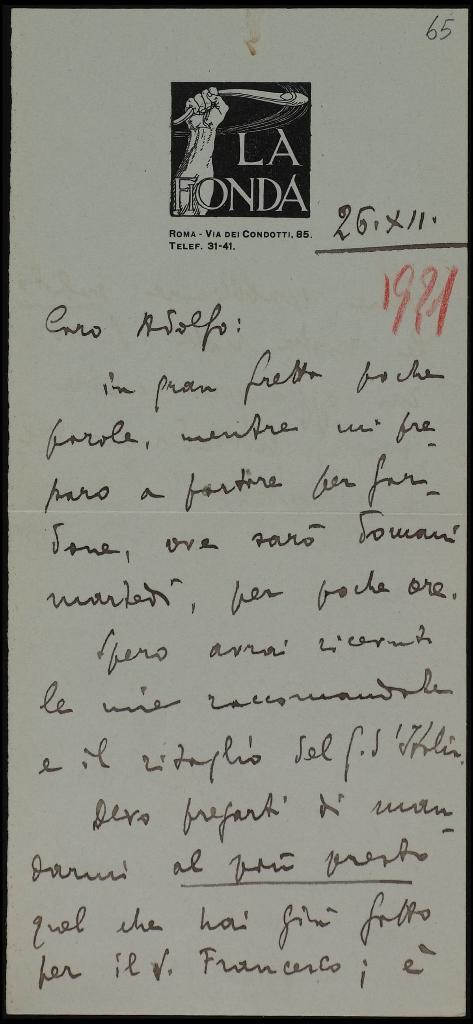 65
LA
FIONDA
ROMA - VIA DEI CONDOTTI, 85.
TELEF. 31-41.
26.XII.
1921
Caro Adolfo:
in gran fretta poche
parole, mentre mi pre-
paro a partire per Gar-
done, ove sarò domani
martedì, per poche ore.
Spero avrai ricevuto
le mie raccomandate
e il ritaglio del G. d'Italia.
Devo pregarti di man-
darmi al più presto
quel che hai già fatto
per il S. Francesco; è